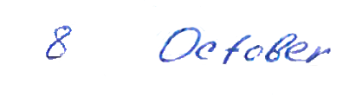 8 October